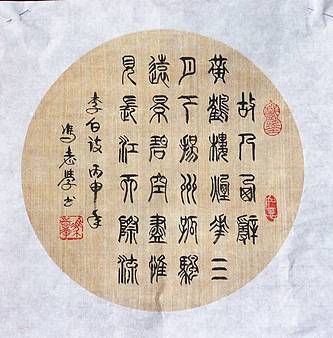 故人西辭
黃鶴樓煙花三
月下揚州孤帆
遠景碧空盡惟
見長江天際流
李白詩 丙申年
馮志學书